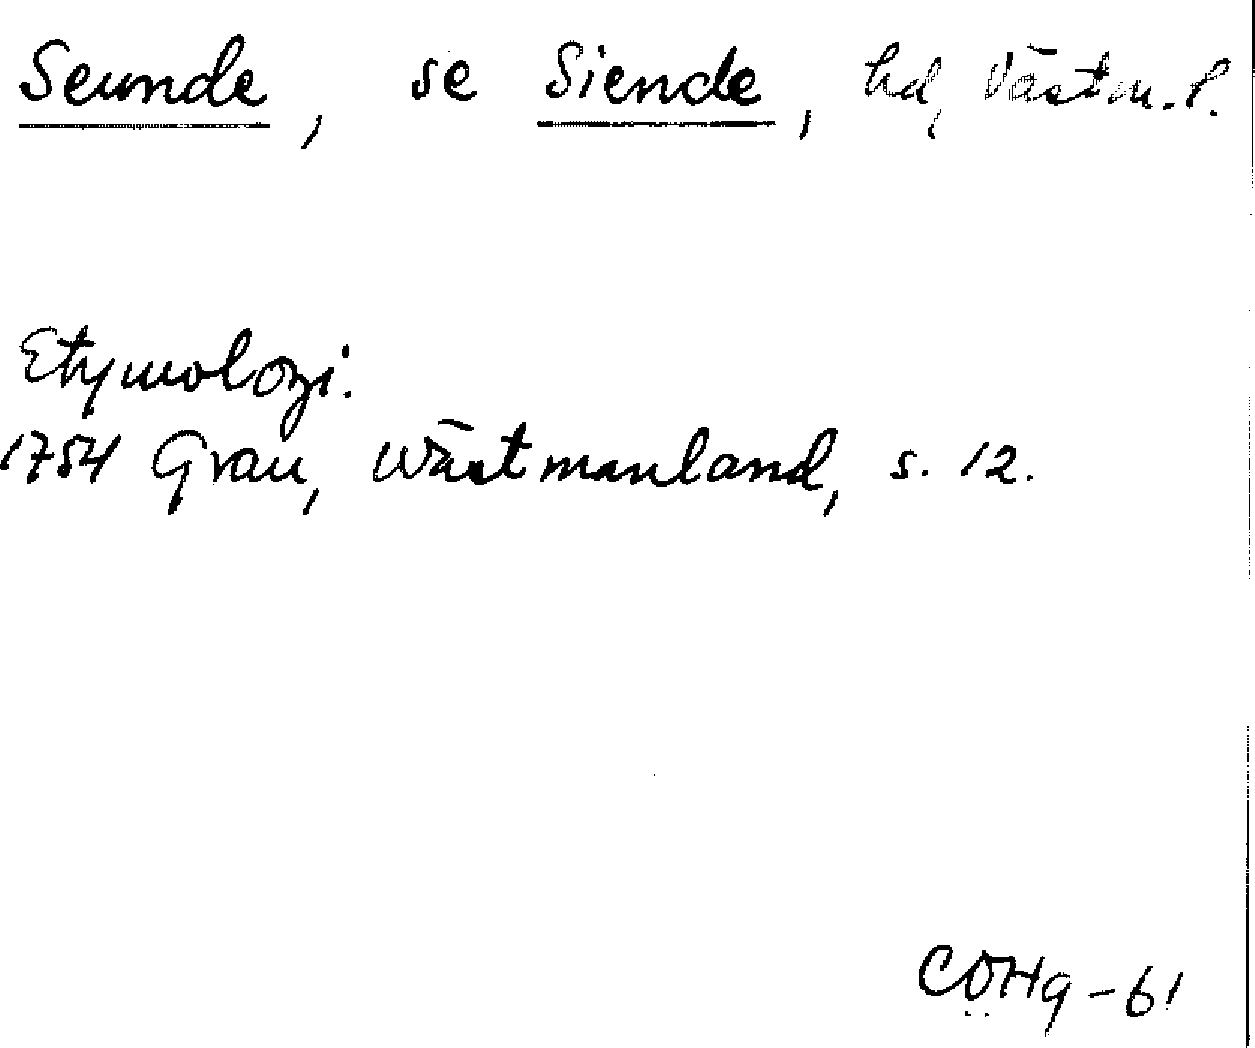 Seunde, se Siende, hd, Västm. l.
Etymologi.
1754 Grau, Wästmanland, s. 12.
CÖHg-61